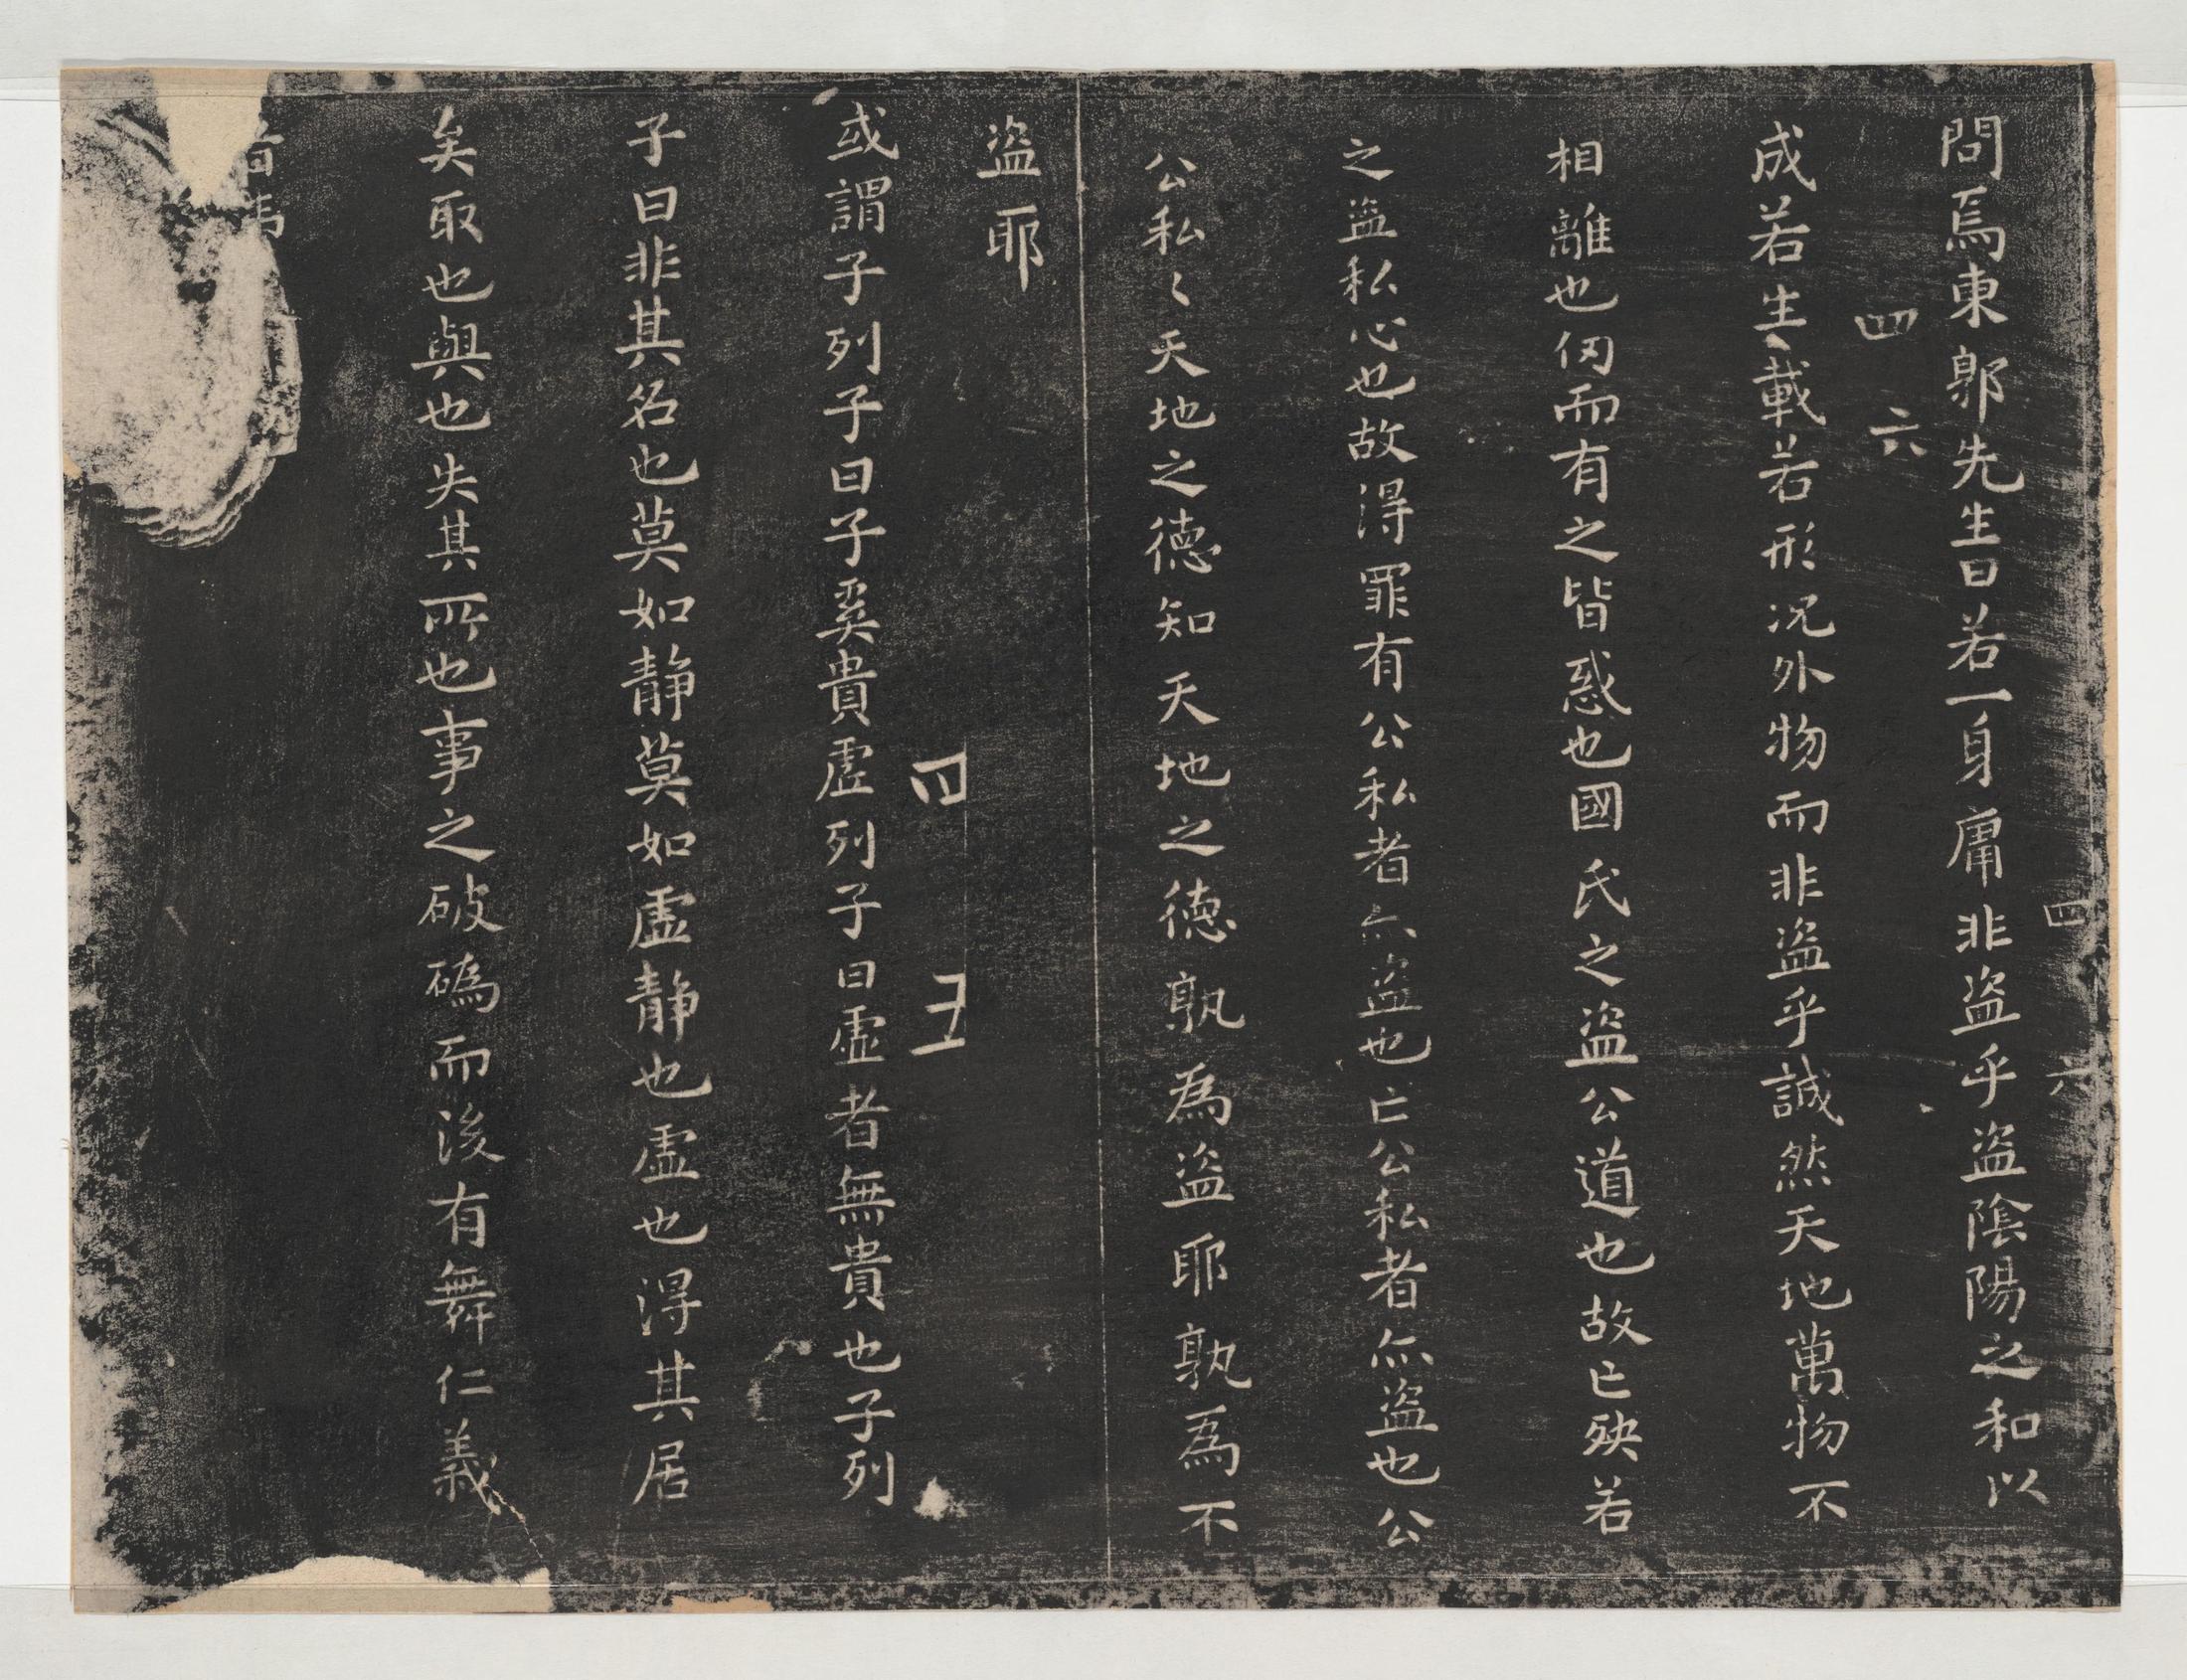 問焉東郭先生曰若一身庸非盜乎盜陰陽之和以
四六
成若生載若形況外物而非盜乎誠然天地萬物不
相離也仞而有之皆惑也國氏之盜公道也故亡殃若
之盜私心也故得罪有公私者亦盜也亡公私者亦盜也公
公私〻天地之德知天地之德孰為盜耶孰為不
盜耶
四五
或謂子列子曰子奚貴虛列子曰虛者無貴也子列
子曰非其名也莫如靜莫如虛靜也虛也得其居
矣取也與也失其所也事之破䃣而後有舞仁義